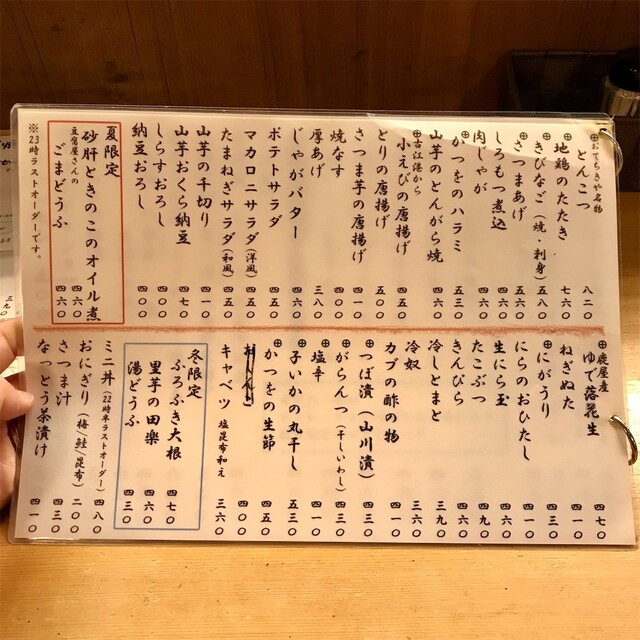 ⊕おてちきや名物
とんこつ 八二〇
⊕地鶏のたたき 七六〇
⊕きびなご（焼・刺身） 五八〇
⊕さつまあげ 四六〇
しろもつ煮込 四六〇
肉じゃが 四六〇
⊕かつをのハラミ 五三〇
山芋のとんがら焼 四六〇
⊕古江港から
小えびの唐揚げ 四五〇
とりの唐揚げ 五〇〇
さつま芋の唐揚げ 四一〇
焼なす 四〇〇
厚あげ 三八〇
じゃがバター 四六〇
ポテトサラダ 四五〇
マカロニサラダ（洋風） 四五〇
たまねぎサラダ（和風） 四五〇
山芋の千切り 四一〇
山芋おくら納豆 四七〇
しらすおろし 四〇〇
納豆おろし 四〇〇
夏限定
砂肝ときのこのオイル煮 四六〇
豆腐屋さんの
ごまどうふ 四六〇
※23時ラストオーダーです。
⊕鹿屋産
ゆで落花生 四七〇
ねぎぬた 四一〇
⊕にがうり 四三〇
にらのおひたし 四一〇
生にら玉 四六〇
たこぶつ 四九〇
きんぴら 四六〇
冷しとまと 三九〇
冷奴 三六〇
カブの酢の物 四一〇
⊕つぼ漬（山川漬） 四三〇
⊕がらんつ（干しいわし） 四三〇
塩辛 四一〇
⊕子いかの丸干し 五三〇
⊕かつをの生節 四五〇
キャベツ 塩昆布和え 三六〇
冬限定
ふろふき大根 四七〇
里芋の田楽 四六〇
湯どうふ 四三〇
ミニ丼（22時半ラストオーダー） 四八〇
おにぎり（梅/鮭/昆布） 二〇〇
さつま汁 四三〇
なっとう茶漬け 四一〇
三九〇